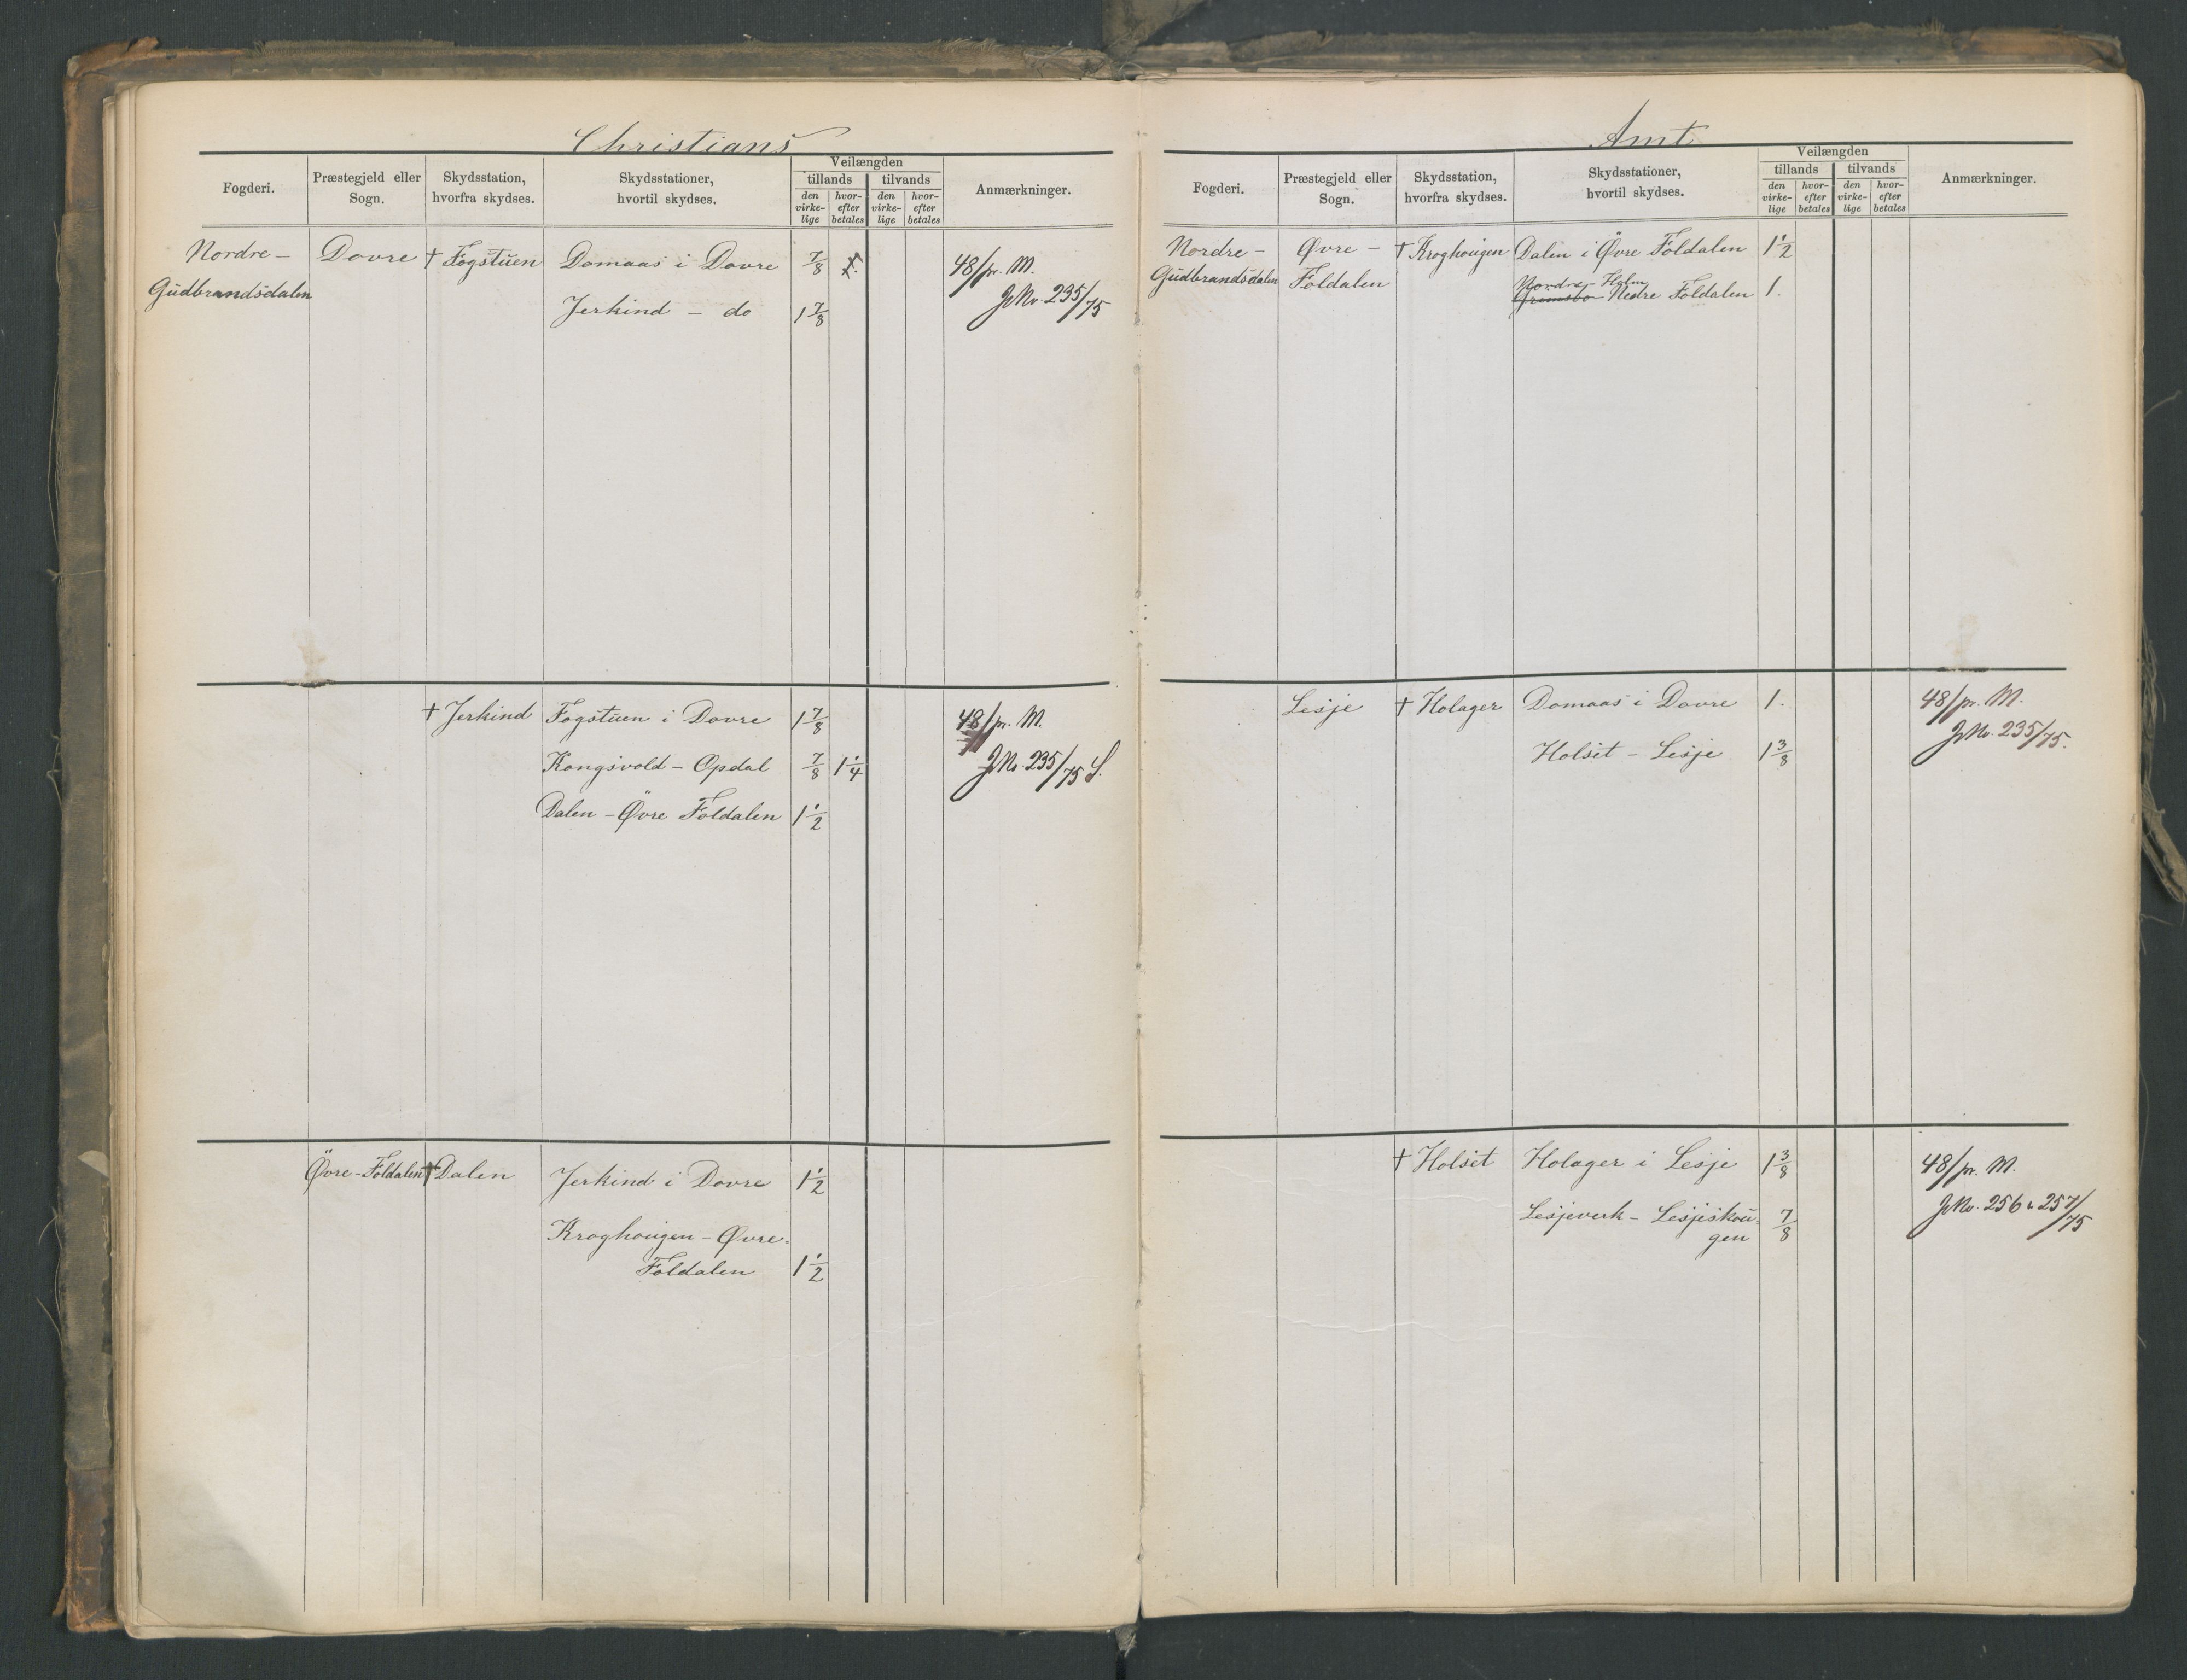 Christians
Fogderi.
Præstegjeld eller
Sogn.
Skydsstation,
hvorfra skydses.
Skydsstationer,
hvortil skydses.
Veilængden
tillands
tilvands
den
virke-
lige
hvor-
efter
betales
den
virke-
lige
hvor-
efter
betales
Anmærkninger.
Nordre – Dovre † Fogstuen Domaas i Dovre 7/8 48/pr. M.
Gudbrandsdalen JNo. 235/75
Jerkind – do 1 7/8
† Jerkind Fogstuen i Dovre 1 7/8 48/pr. M.
Kongsvold – Opdal 7/8 1 1/4 JNo. 235/75 S.
Dalen – Øvre Foldalen 1 1/2
Øvre-Foldalen † Dalen Jerkind i Dovre 1 1/2
Kroghougen – Øvre-
Foldalen 1 1/2
Amt
Fogderi.
Præstegjeld eller
Sogn.
Skydsstation,
hvorfra skydses.
Skydsstationer,
hvortil skydses.
Veilængden
tillands
tilvands
den
virke-
lige
hvor-
efter
betales
den
virke-
lige
hvor-
efter
betales
Anmærkninger.
Nordre – Øvre – † Kroghougen Dalen i Øvre Foldalen 1 1/2
Gudbrandsdalen Foldalen
Nordre-Holm
Grimsbo – Nedre Foldalen 1.
Lesje † Holager Domaas i Dovre 1. 48/pr. M.
Holset – Lesje 1 3/8 JNo. 235/75.
† Holset Holager i Lesje 1 3/8 48/pr. M.
Lesjeverk – Lesjeskou- 7/8 JNo. 256 & 257/75
gen